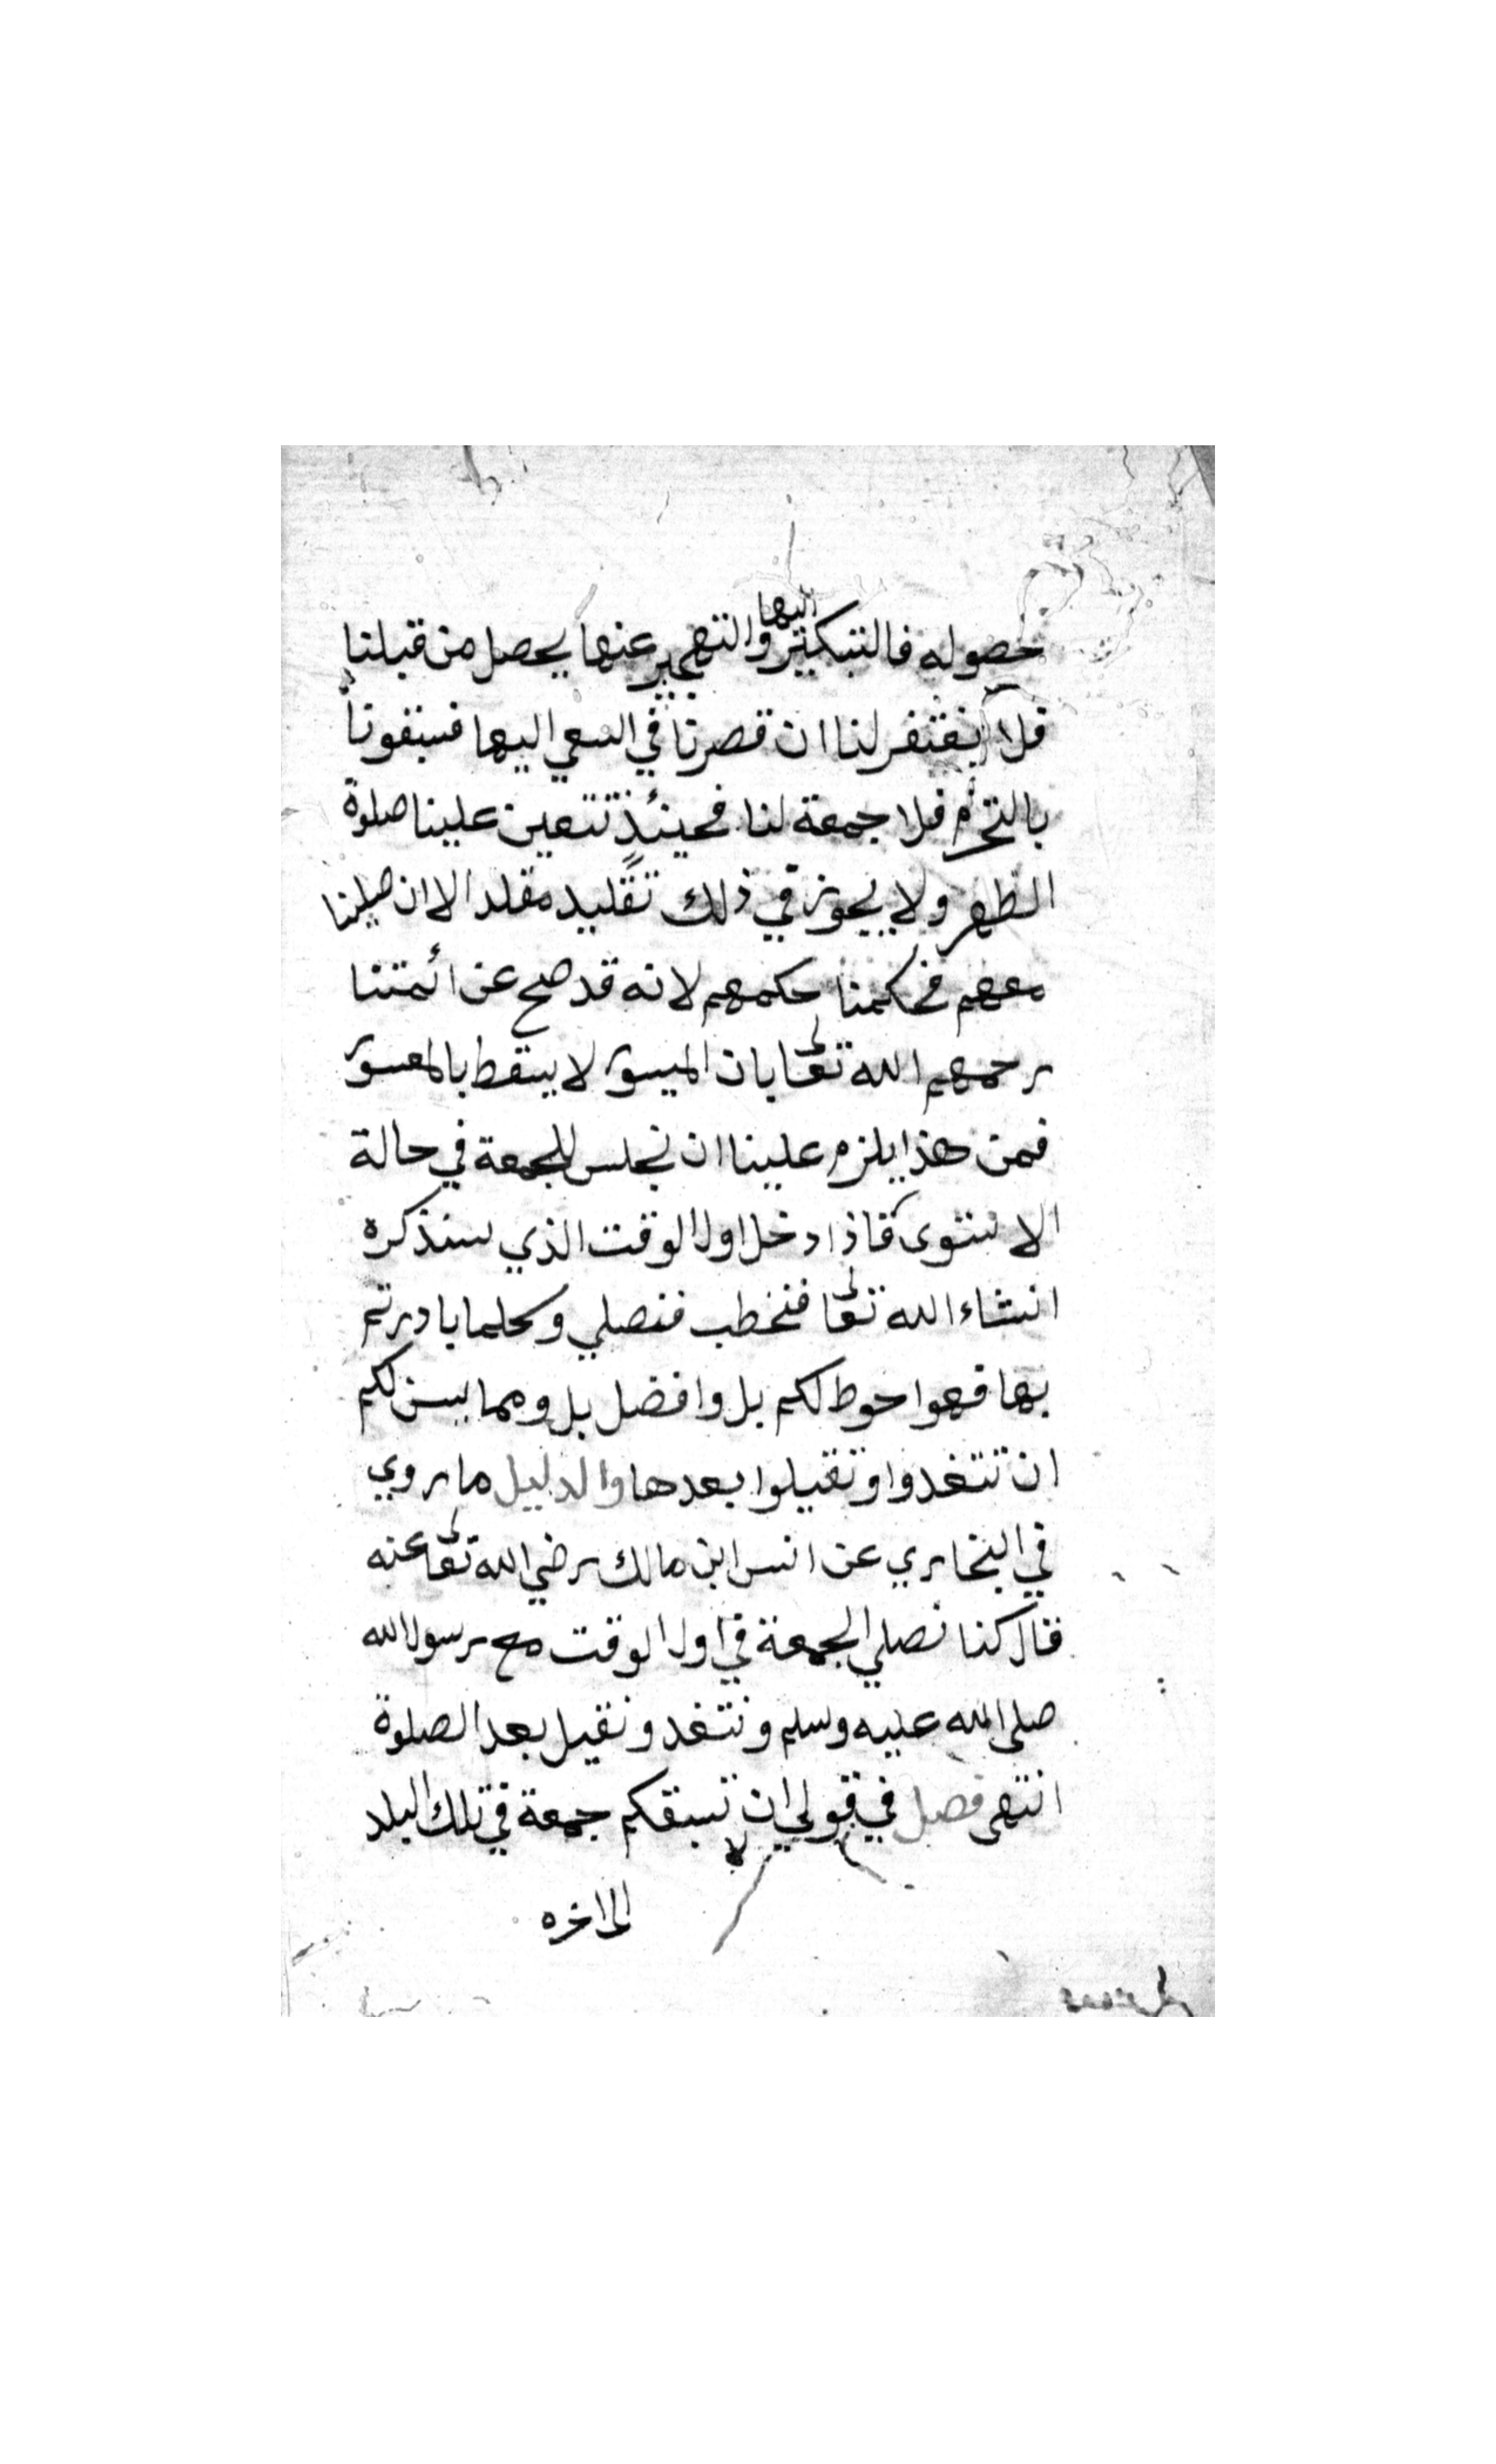 حصوله فالتبكير اليها والتهجير عنها يحصل من قبلنا
فلا يغتفر لنا ان قصرنا في السعي اليها فسبقونا
بالتحرم فلا جمعة لنا فحينئذٍ تتعين علينا صلوة
الظهر ولا يجوز في ذلك تقليد مقلد الا ان صلينا
معهم فحكمنا حكمهم لانه قد صح عن ائمتنا
رحمهم الله تعالى بان الميسور لا يسقط بالمعسور
فمن هذا يلزم علينا ان نجلس للجمعة في حالة
الاستوى فاذا دخل اول الوقت الذي سنذكره
انشاء الله تعالى فنخطب فنصلي وكلما بادرتم
بها فهوا حوط لكم بل وافضل بل ومما يسن لكم
ان تتغدوا وتقيلوا بعدها والدليل ما روي
في البخاري عن انس ابن مالك رضي الله تعالى عنه
قال كنا نصلي الجمعة في اول الوقت مع رسول الله
صلى الله عليه وسلم ونتغد ونقيل بعد الصلوة
انتهى فصل في قولي ان لا تسبقكم جمعة في تلك البلد
الى اخره